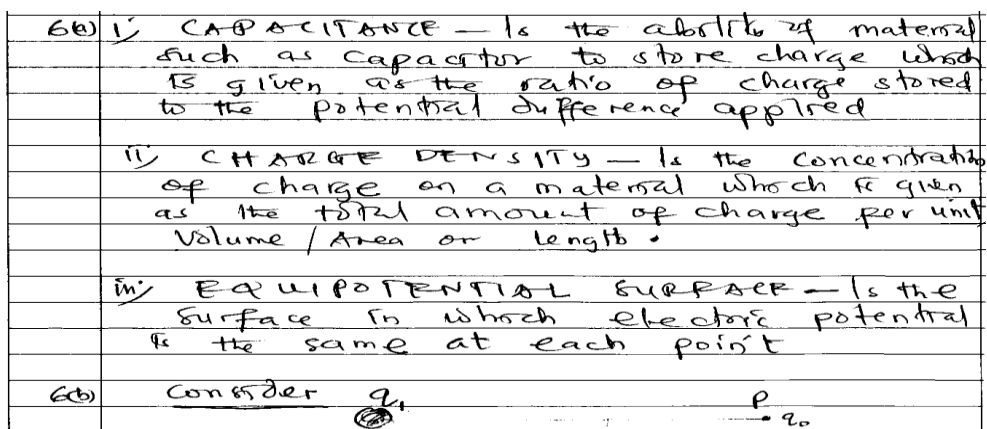 6(a) i/ CAPACITANCE - Is the ability of material
such as capacitor to store charge which
is given as the ratio of charge stored
to the potential difference applied
ii/ CHARGE DENSITY - Is the concentration
of charge on a material which is given
as the total amount of charge per unit
Volume / Area or Length.
iii/ EQUIPOTENTIAL SURFACE - Is the
surface in which electric potential
is the same at each point
6(b) Consider q₁ P
q₀